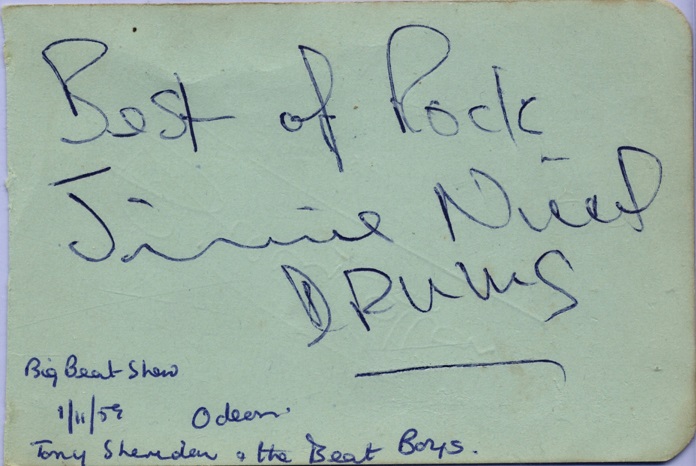 Best of Rock
Jimmie Nicol
DRUMS
Big Beat Show
1/11/59 Odeon.
Tony Sheriden & the Beat Boys.